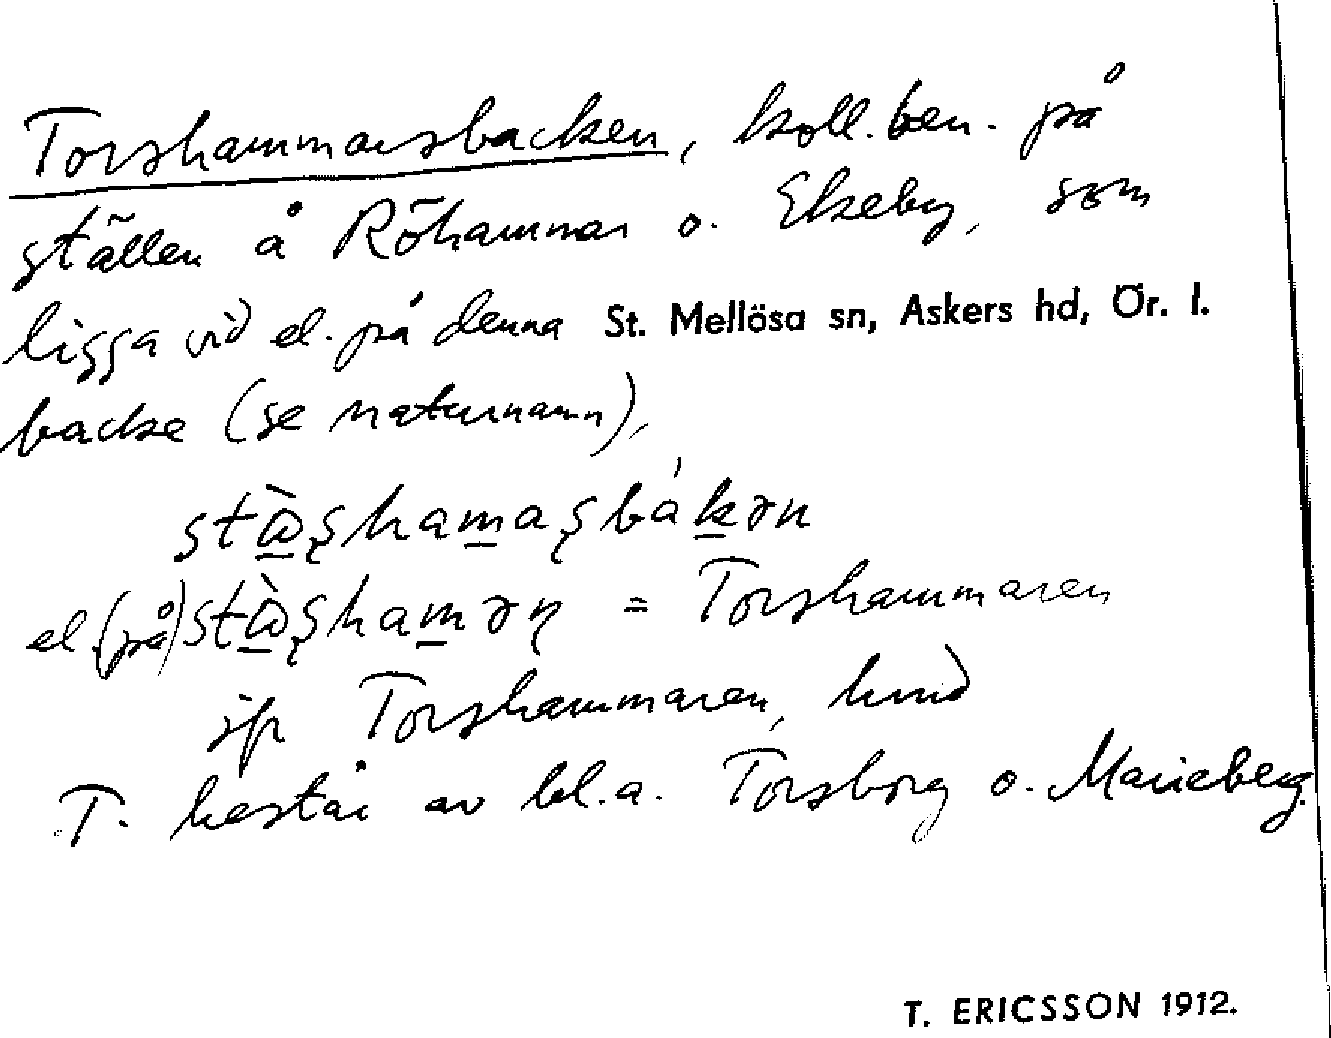 Torshammarsbacken, koll. ben. på
ställen å Röhammar o. Ekeby, som
ligga vid el. på denna St. Mellösa sn, Askers hd, Ör. l.
backe (se naturnamn),
el. (på) = Torshammaren
jfr Torshammaren, hmd
T. består av bl.a. Torsborg o. Marieberg.
T. ERICSSON 1912.